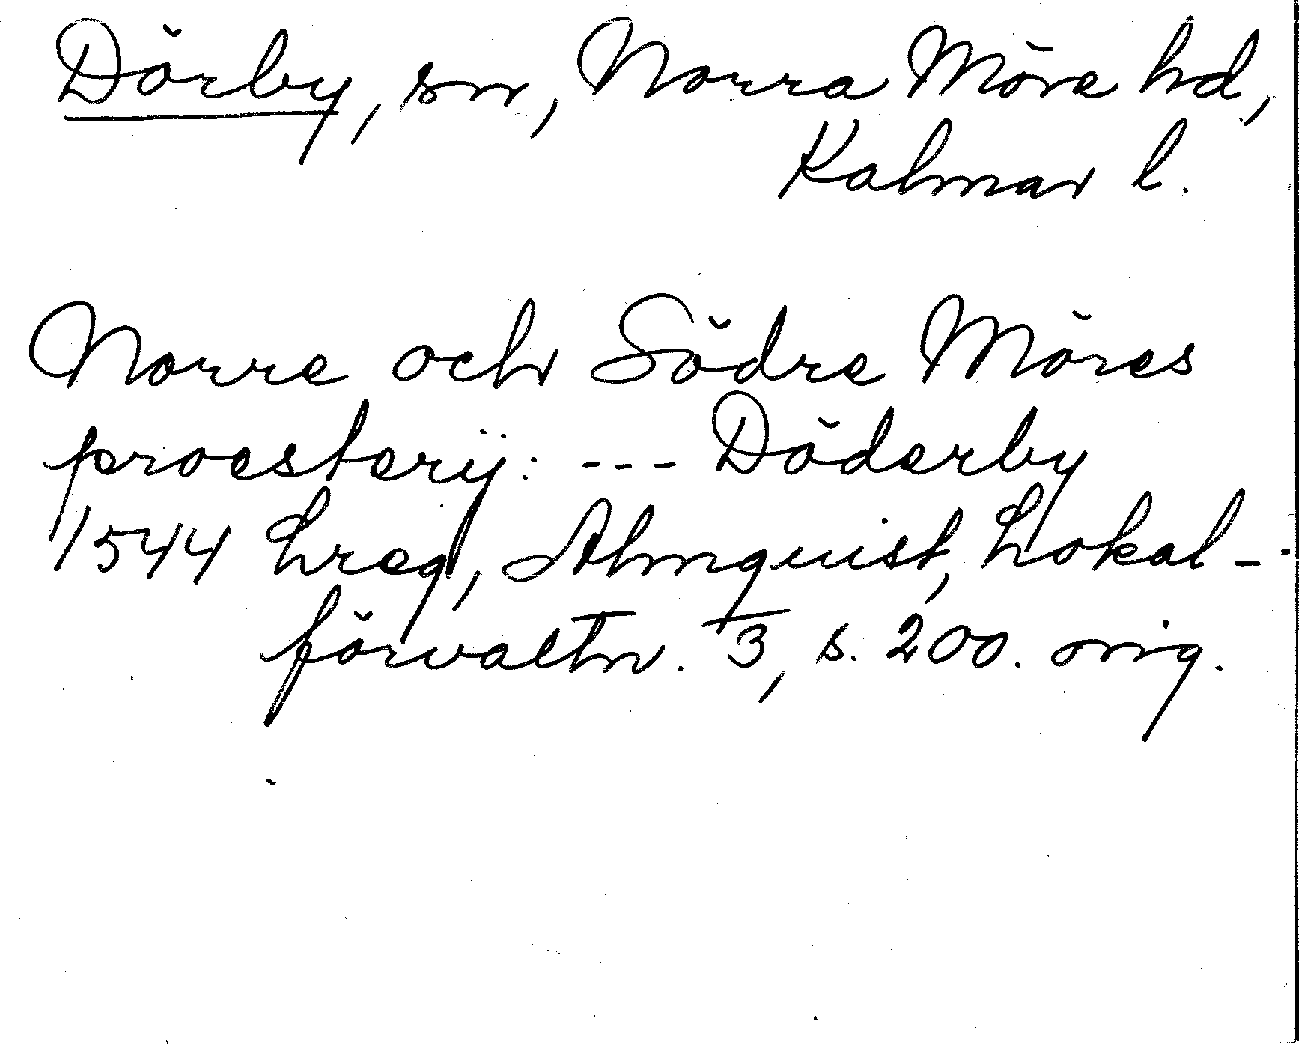 Dörby, sn, Norra Möre hd,
Kalmar l.
Norre och Södre Möres
proestery: --- Döderby
1544 Lreg, Almquist, Lokal-
förvaltn. 3, s. 200. orig.